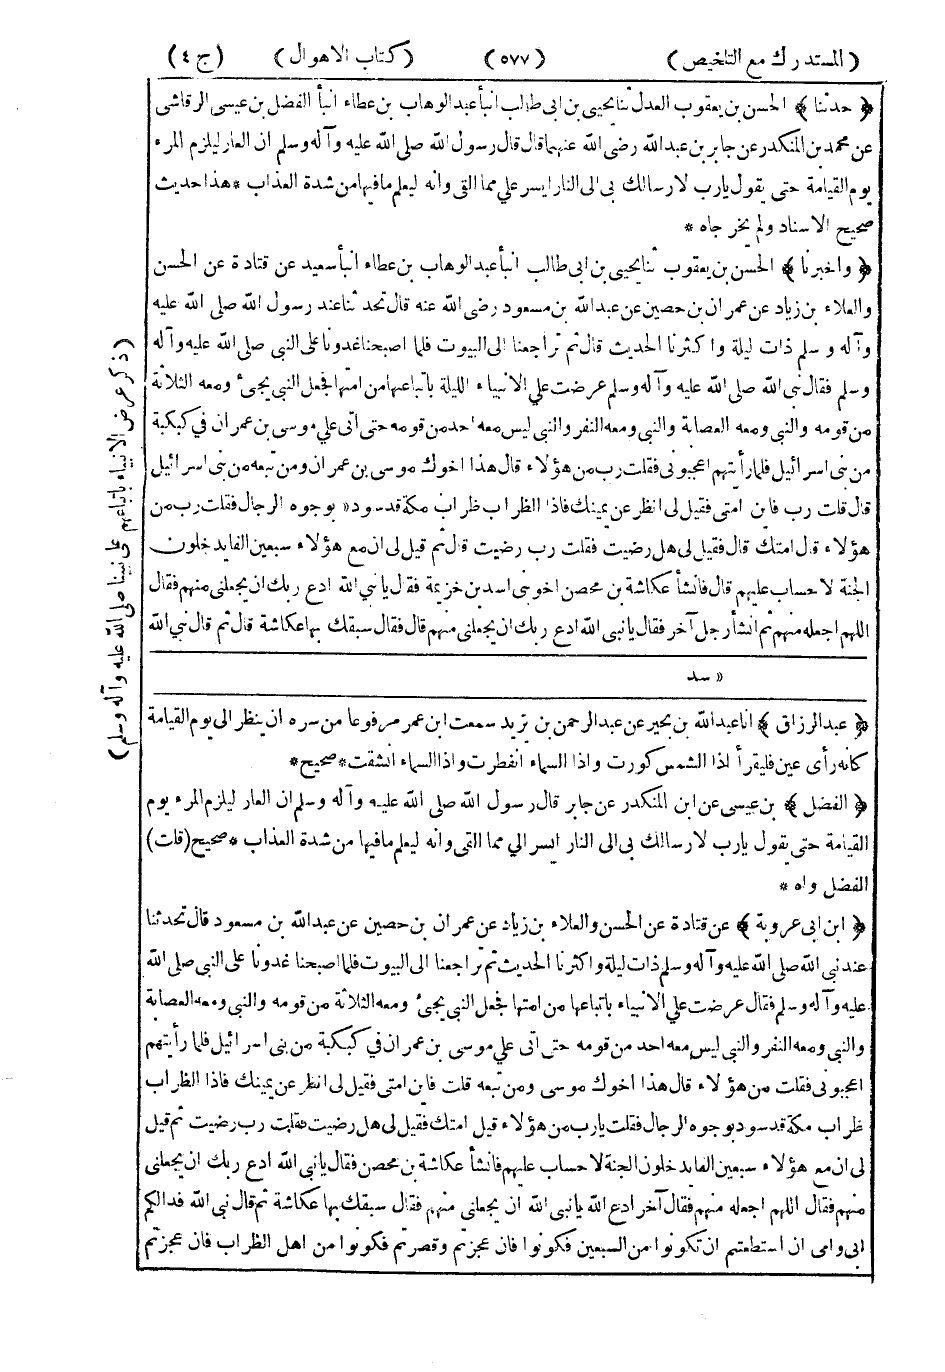 (المستدرك مع التلخيص) (٥٧٧) (كتاب الاهوال) (ج ٤)
﴿ حدثنا ﴾ الحسن بن يعقوب العدل ثنا يحيى بن ابى طالب انبأ عبد الوهاب بن عطاء انبأ الفضل بن عيسى الرقاشى
عن محمد بن المنكدر عن جابر بن عبد الله رضى الله عنهما قال قال رسول الله صلى الله عليه وآله وسلم ان العار ليلزم المرء
يوم القيامة حتى يقول يارب لارسالك بى الى النار ايسر علي مما القى وانه ليعلم مافيها من شدة العذاب * هذا حديث
صحيح الاسناد ولم يخرجاه *
﴿ واخبرنا ﴾ الحسن بن يعقوب ثنا يحيى بن ابى طالب انبأ عبد الوهاب بن عطاء انبأ سعيد عن قتادة عن الحسن
والعلاء بن زياد عن عمران بن حصين عن عبد الله بن مسعود رضى الله عنه قال تحدثنا عند رسول الله صلى الله عليه
وآله وسلم ذات ليلة واكثرنا الحديث قال ثم تراجعنا الى البيوت فلما اصبحنا غدونا على النبى صلى الله عليه وآله
وسلم فقال نبى الله صلى الله عليه وآله وسلم عرضت علي الانبياء الليلة باتباعها من امتها فجعل النبى يجىء ومعه الثلاثة
من قومه والنبى ومعه العصابة والنبى ومعه النفر والنبى ليس معه احد من قومه حتى اتى علي موسى بن عمران في كبكبة
من بنى اسرائيل فلما رأيتهم اعجبونى فقلت رب من هؤلاء قال هذا اخوك موسى بن عمران ومن تبعه من بنى اسرائيل
قال قلت رب فاين امتى فقيل لى انظر عن يمينك فاذا الظراب ظراب مكة قد سود« بوجوه الرجال فقلت رب من
هؤلاء قال امتك قال فقيل لى هل رضيت فقلت رب رضيت قال ثم قيل لى ان مع هؤلاء سبعين الفا يدخلون
الجنة لا حساب عليهم قال فانشأ عكاشة بن محصن اخو بنى اسد بن خزيمة فقال يا نبي الله ادع ربك ان يجعلنى منهم فقال
اللهم اجعله منهم ثم انشأ رجل آخر فقال يا نبى الله ادع ربك ان يجعلنى منهم قال فقال سبقك بها عكاشة قال ثم قال نبي الله
« سد
﴿ عبد الرزاق ﴾ انا عبد الله بن بحير عن عبد الرحمن بن يزيد سمعت ابن عمر مرفوعا من سره ان ينظر الى يوم القيامة
كانه رأى عين فليقرأ اذا الشمس كورت واذا السماء انفطرت واذا السماء انشقت * صحيح *
﴿ الفضل ﴾ بن عيسى عن ابن المنكدر عن جابر قال رسول الله صلى الله عليه وآله وسلم ان العار ليلزم المرء يوم
القيامة حتى يقول يارب لارسالك بى الى النار ايسر الي مما القى وانه ليعلم مافيها من شدة العذاب * صحيح (قلت)
الفضل واه *
﴿ ابن ابى عروبة ﴾ عن قتادة عن الحسن والعلاء بن زياد عن عمران بن حصين عن عبد الله بن مسعود قال تحدثنا
عند نبى الله صلى الله عليه وآله وسلم ذات ليلة واكثرنا الحديث ثم تراجعنا الى البيوت فلما اصبحنا غدونا على النبى صلى الله
عليه وآله وسلم فقال عرضت علي الانبياء باتباعها من امتها فجعل النبى يجىء ومعه الثلاثة من قومه والنبى ومعه العصابة
والنبى ومعه النفر والنبى ليس معه احد من قومه حتى اتى علي موسى بن عمران في كبكبة من بنى اسرائيل فلما رأيتهم
اعجبونى فقلت من هؤلاء قال هذا اخوك موسى ومن تبعه قلت فاين امتى فقيل لى انظر عن يمينك فاذا الظراب
ظراب مكة قد سود بوجوه الرجال فقلت يارب من هؤلاء قيل امتك فقيل لى هل رضيت فقلت رب رضيت ثم قيل
لى ان مع هؤلاء سبعين الفا يدخلون الجنة لا حساب عليهم فانشأ عكاشة بن محصن فقال يا نبى الله ادع ربك ان يجعلنى
منهم فقال اللهم اجعله منهم فقال آخر ادع الله يا نبى الله ان يجعلنى منهم فقال سبقك بها عكاشة ثم قال نبى الله فدالكم
ابى وامى ان استطعتم ان تكونوا من السبعين فكونوا فان عجزتم وقصرتم فكونوا من اهل الظراب فان عجزتم
(ذكر عرض الانبياء باتباعهم على نبينا صلى الله عليه وآله وسلم)